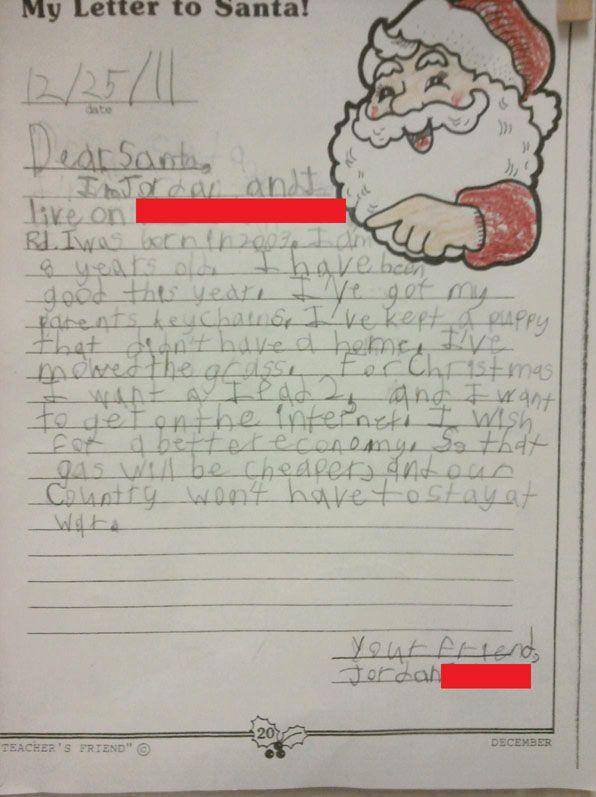 My Letter to Santa!
12/25/11
date
Dear Santa,
I'm Jordan and I
live on
Rd. I was born in 2003. I am
8 years old. I have been
good this year. I've got my
parents keychains. I've kept a puppy
that didn't have a home. I've
mowed the grass. For Christmas
I want a Ipad 2, and I want
to get on the internet. I wish
for a better economy. So that
gas will be cheaper, and our
Country won't have to stay at
war.
Your friend,
Jordan
20
TEACHER'S FRIEND" ©
DECEMBER